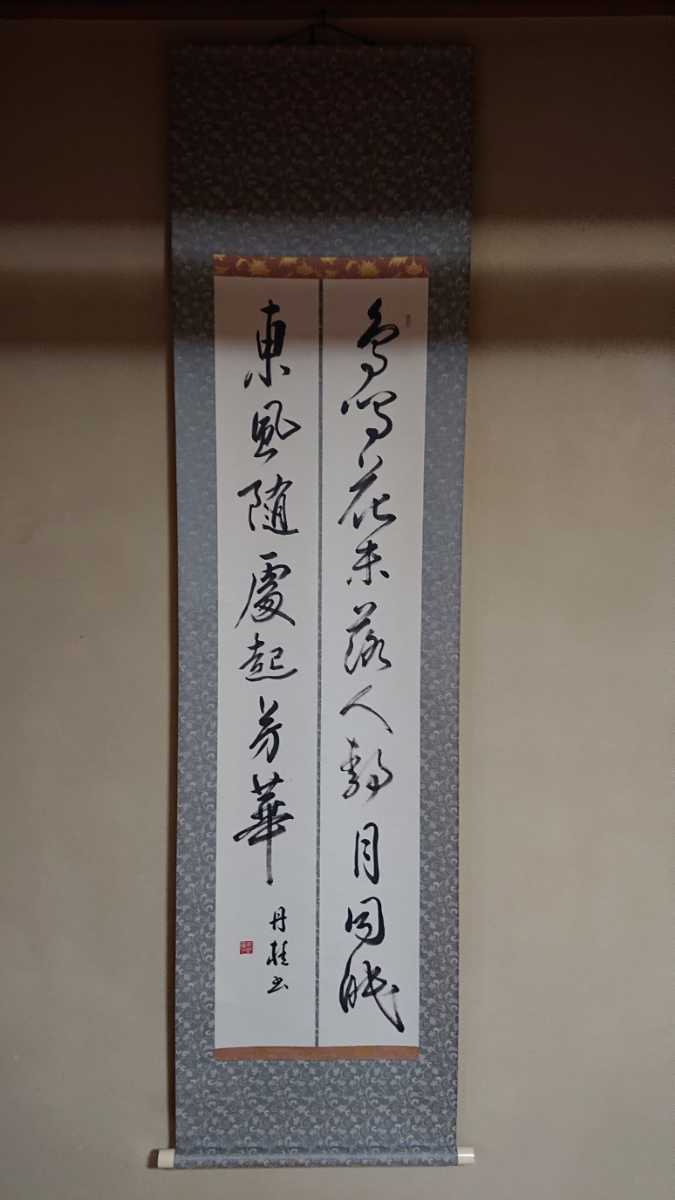 鳥鳴花未落人静月同眠
東風随處起芳華
丹桂書